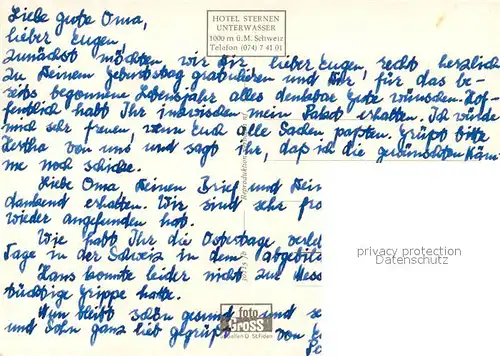 HOTEL STERNEN
UNTERWASSER
1000 m ü. M. Schweiz
Telefon (074) 7 41 01
Liebe gute Oma,
lieber Eugen,
zunächst möchten wir Dir, lieber Eugen, recht herzlich
zu Deinem Geburtstag gratulieren und Dir, für das be-
reits begonnene Lebensjahr alles denkbar Gute wünschen. Hof-
fentlich habt Ihr inzwischen mein Paket erhalten. Ich würde
mich sehr freuen, wenn Euch alle Sachen paßten. Grüßt bitte
Hertha von uns und sagt ihr, daß ich die gewünschten
me noch schicke.
Liebe Oma, Deinen Brief und Dein
dankend erhalten. Wir sind sehr fro
wieder angefunden hat.
Wie habt Ihr die Ostertage verle
Tage in der Schweiz in dem abgebil
Hans konnte leider nicht zur Mess
tüchtige Grippe hatte.
Nun bleibt schön gesund und se
und Sohn ganz lieb gegrüßt von
privacy protection
Datenschutz
foto
GROSS
St. Gallen O St. Fiden